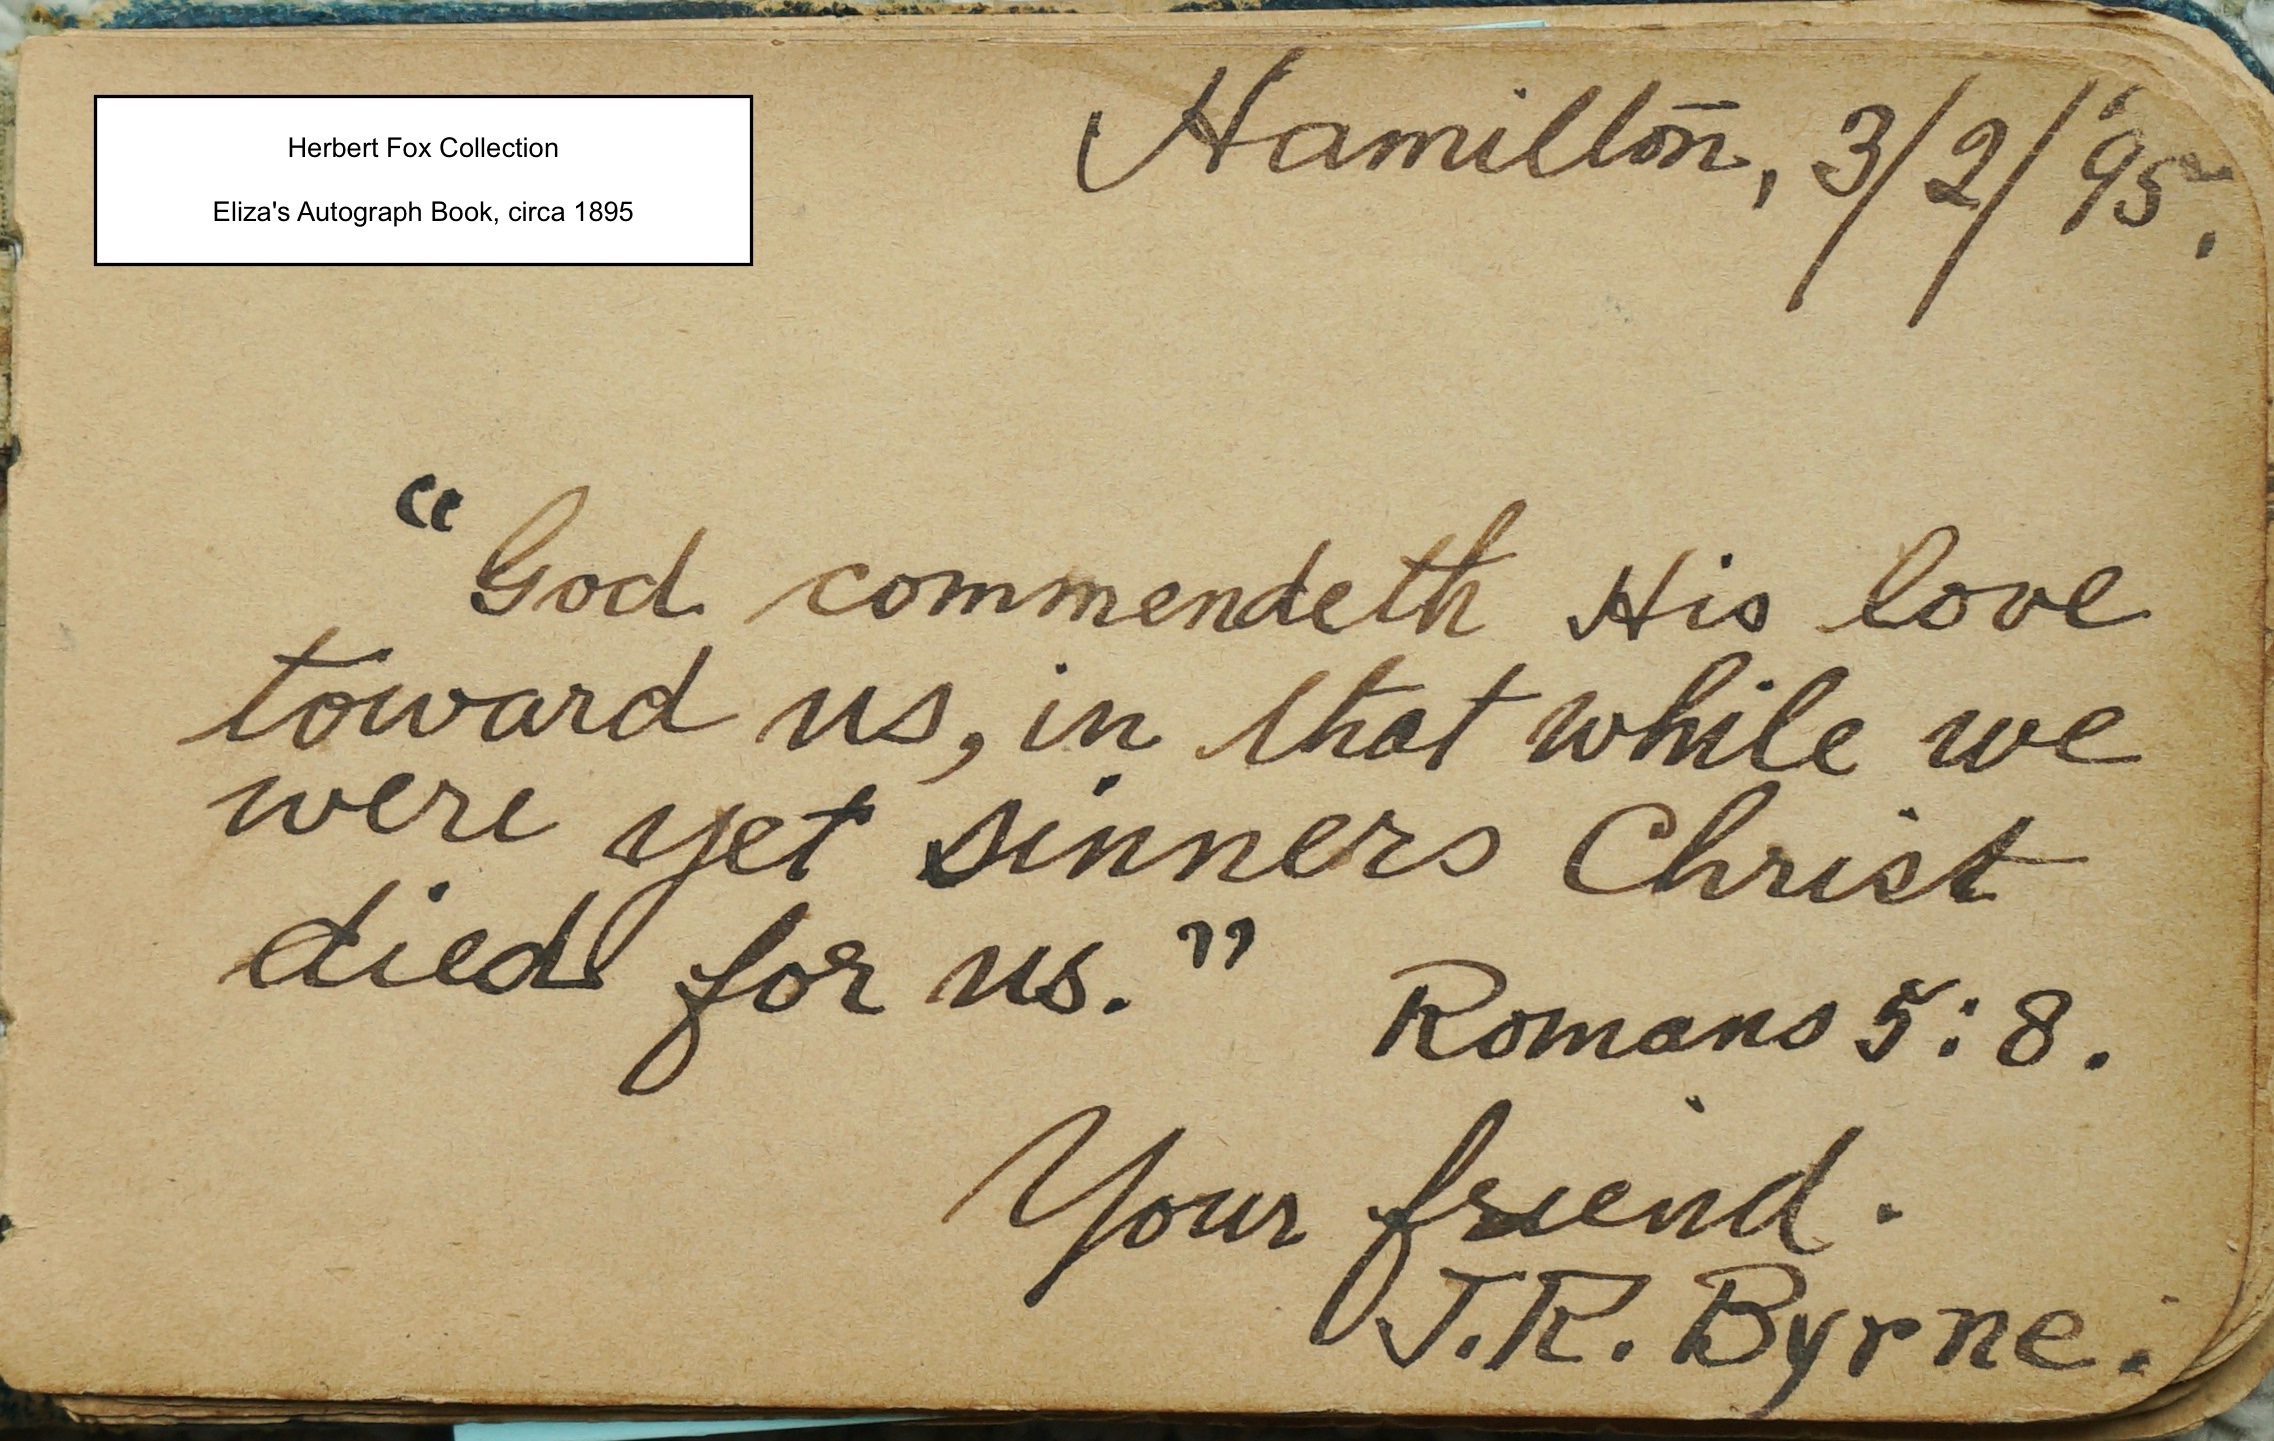 Herbert Fox Collection
Eliza's Autograph Book, circa 1895
Hamilton, 3/2/'95.
"God commendeth His love
toward us, in that while we
were yet sinners Christ
died for us."
Romans 5:8.
Your friend.
J.R. Byrne.